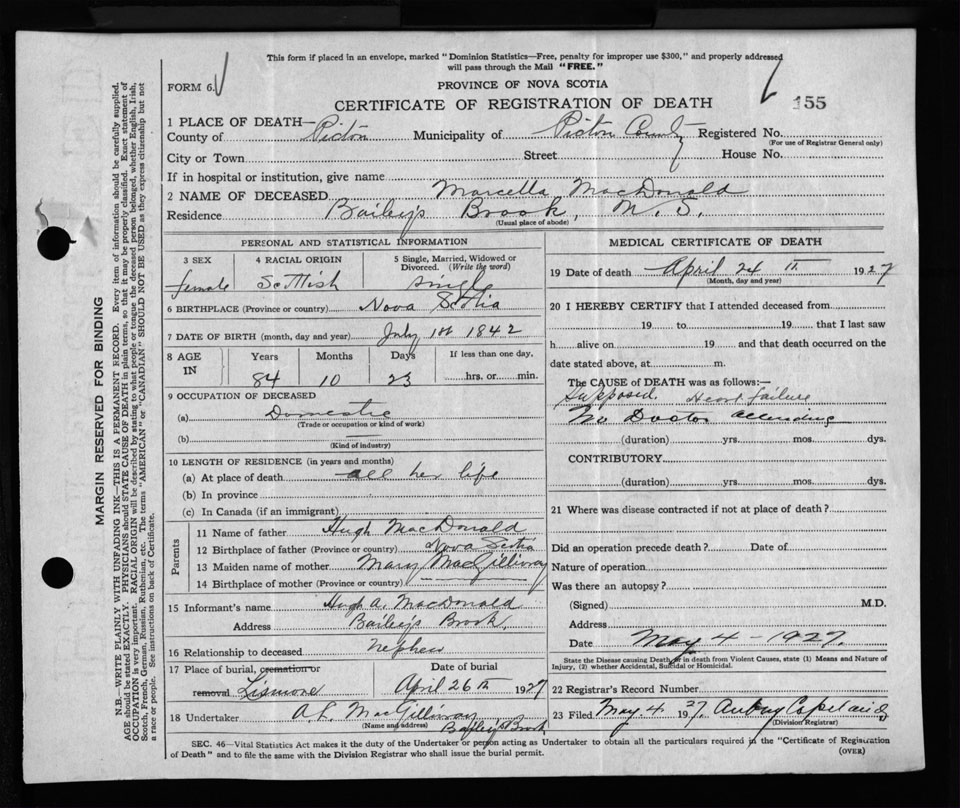 This form if placed in an envelope, marked "Dominion Statistics—Free, penalty for improper use $300," and properly addressed
will pass through the Mail "FREE."
FORM 6.
PROVINCE OF NOVA SCOTIA
CERTIFICATE OF REGISTRATION OF DEATH
155
1 PLACE OF DEATH—
County of Pictou Municipality of Pictou County Registered No.
(For use of Registrar General only)
City or Town Street House No.
If in hospital or institution, give name
2 NAME OF DECEASED Marcella MacDonald
Residence Bailey's Brook, N. S.
(Usual place of abode)
PERSONAL AND STATISTICAL INFORMATION
3 SEX 4 RACIAL ORIGIN 5 Single, Married, Widowed or
Divorced. (Write the word)
female Scottish single
6 BIRTHPLACE (Province or country) Nova Scotia
7 DATE OF BIRTH (month, day and year) July 1st 1842
8 AGE IN Years Months Days If less than one day.
84 10 23 hrs. or min.
9 OCCUPATION OF DECEASED
(a) Domestic
(Trade or occupation or kind of work)
(b)
(Kind of industry)
10 LENGTH OF RESIDENCE (in years and months)
(a) At place of death all her life
(b) In province
(c) In Canada (if an immigrant)
Parents
11 Name of father Hugh MacDonald
12 Birthplace of father (Province or country) Nova Scotia
13 Maiden name of mother Mary MacGillivray
14 Birthplace of mother (Province or country) —
15 Informant's name Hugh A. MacDonald
Address Bailey's Brook.
16 Relationship to deceased Nephew
17 Place of burial, cremation or Date of burial
removal Lismore April 26th 1927
18 Undertaker A L. MacGillivray
(Name and address) Bailey's Brook
MEDICAL CERTIFICATE OF DEATH
19 Date of death April 24 1927
(Month, day and year)
20 I HEREBY CERTIFY that I attended deceased from
19 to 19 that I last saw
h alive on 19 and that death occurred on the
date stated above, at m.
The CAUSE of DEATH was as follows:—
Supposed. Heart failure
No Doctor attending
(duration) yrs. mos. dys.
CONTRIBUTORY
(duration) yrs. mos. dys.
21 Where was disease contracted if not at place of death?
Did an operation precede death? Date of
Nature of operation
Was there an autopsy?
(Signed) M.D.
Address
Date May 4 - 1927.
State the Disease causing Death, or in death from Violent Causes, state (1) Means and Nature of
Injury, (2) whether Accidental, Suicidal or Homicidal.
22 Registrar's Record Number
23 Filed May 4 1927.
(Division Registrar)
SEC. 46—Vital Statistics Act makes it the duty of the Undertaker or person acting as Undertaker to obtain all the particulars required in the "Certificate of Registration
of Death" and to file the same with the Division Registrar who shall issue the burial permit.
(OVER)
MARGIN RESERVED FOR BINDING
N.B.—WRITE PLAINLY WITH UNFADING INK—THIS IS A PERMANENT RECORD. Every item of information should be carefully supplied.
AGE should be stated EXACTLY. PHYSICIANS should STATE CAUSE OF DEATH in plain terms, so that it may be properly classified. Exact statement of
OCCUPATION is very important. RACIAL ORIGIN will be described by stating to what people or tongue the deceased person belonged, whether English, Irish,
Scotch, French, German, Russian, Ruthenian, etc. The terms "AMERICAN" or "CANADIAN" SHOULD NOT BE USED as they express citizenship but not
a race or people. See instructions on back of Certificate.